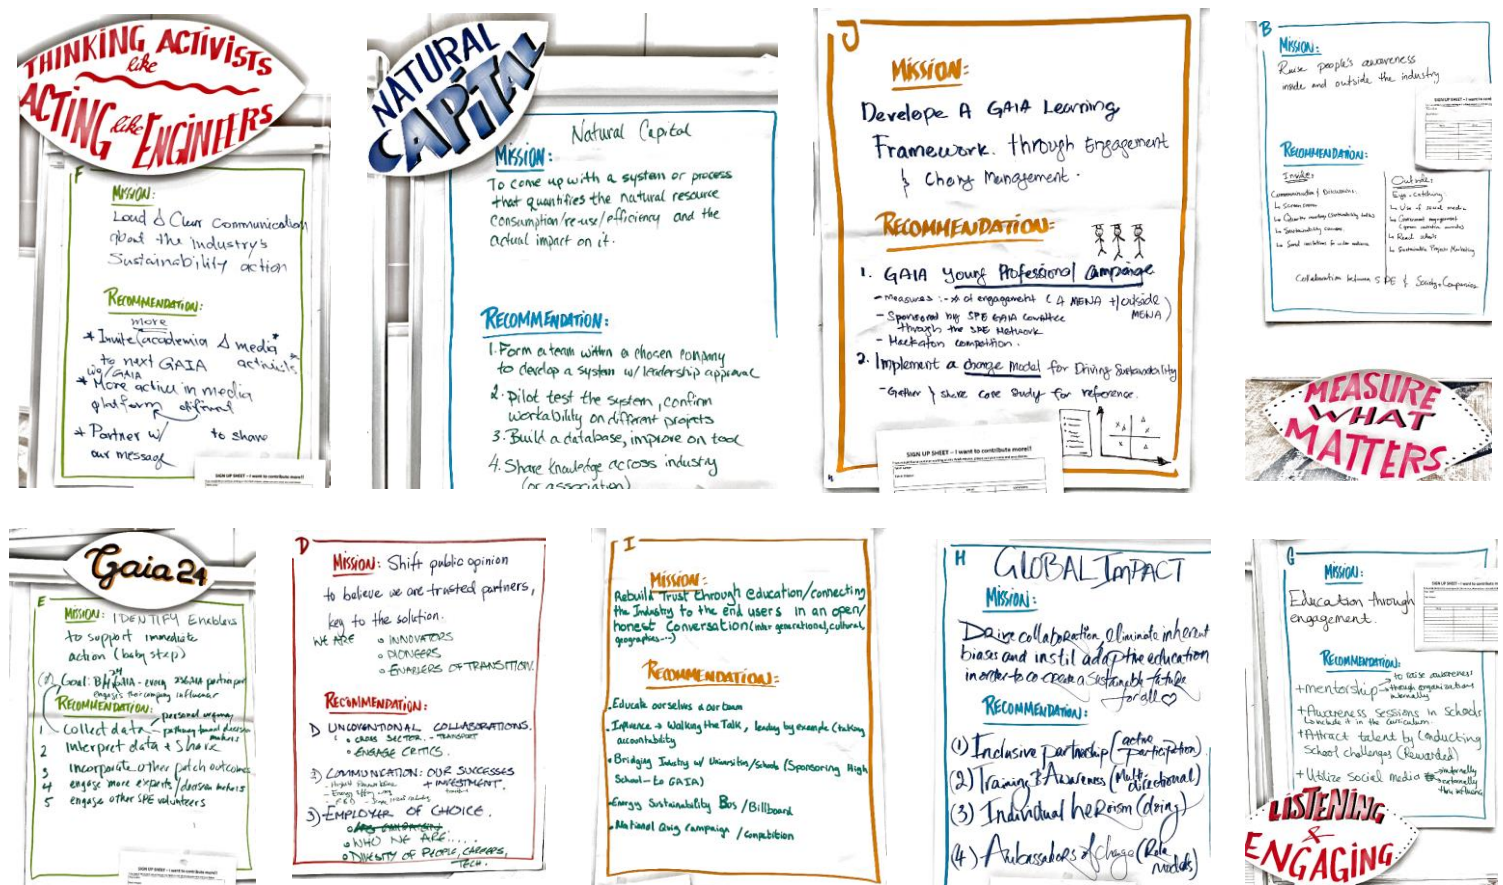 THINKING ACTIVISTS
like
ACTING like ENGINEERS
F
MISSION:
Loud & Clear Communication
about the industry's
Sustainability action
RECOMMENDATION:
more
* Invite academia & media*
to next GAIA activists
* More active in media
platform different
* Partner w/ to share
our message
SIGN UP SHEET – I want to contribute more!!
NATURAL
CAPITAL
Natural Capital
MISSION:
To come up with a system or process
that quantifies the natural resource
consumption/re-use/efficiency and the
actual impact on it.
RECOMMENDATION:
1. Form a team within a chosen company
to develop a system w/ leadership approval
2. Pilot test the system, confirm
workability on different projects
3. Build a database, improve on tool
4. Share knowledge across industry
(or association)
J
MISSION:
Develope A GAIA Learning
Framework. through Engagement
& Chang Management.
RECOMMENDATION:
1. GAIA Young Professional Campainge
- Measures :- # of engagement (4 MENA +/outside MENA)
- Sponsored by SPE GAIA committee
through the SPE Network
- Hackaton competition.
2. Implement a change model for Driving Sustainability
- Gather & share case study for reference.
SIGN UP SHEET – I want to contribute more!!
B
MISSION:
Raise people's awareness
inside and outside the industry
SIGN UP SHEET – I want to
RECOMMENDATION:
Inside:
Communication & Discussions:
↳ Screen saver
↳ Sustainability
Outside:
Eye-catching
↳ Use of social media
↳ Government engagement
↳ Sustainable Projects Marketing
Collaboration between SPE & Society + Companies
MEASURE
WHAT
MATTERS
Gaia24
E
MISSION: IDENTIFY Enablers
to support immediate
action (baby step)
Goal: every participant
engages their company influencer
RECOMMENDATION:
1 collect data
2 interpret data + share
3 incorporate other patch outcomes
4 engage more experts/decision makers
5 engage other SPE volunteers
SIGN UP SHEET – I want to contribute more!!
D
MISSION: Shift public opinion
to believe we are trusted partners,
key to the solution.
WE ARE o INNOVATORS
o PIONEERS
o ENABLERS OF TRANSITION.
RECOMMENDATION:
1) UNCOVENTIONAL COLLABORATIONS.
o CROSS SECTOR - TRANSPORT
o ENGAGE CRITICS.
2) COMMUNICATION: OUR SUCCESSES
+ INVESTMENT.
3) EMPLOYER OF CHOICE.
o WHO WE ARE.....
o DIVERSITY OF PEOPLE, CAREERS,
TECH.
I
MISSION:
Rebuild Trust through education/connecting
the Industry to the end users in an open/
honest Conversation (inter generational, cultural,
geographies...)
RECOMMENDATION:
• Educate ourselves & our team
• Influence → Walking the Talk, leading by example (taking
accountability
• Bridging Industry w/ Universities/schools (Sponsoring High
School → to GAIA)
• Energy Sustainability Bus / Billboard
• National Quiz campaign / competition
H
GLOBAL IMPACT
MISSION:
Drive collaboration, eliminate inherent
biases and instil adaptive education
in order to co create a Sustainable future
for all ♡
RECOMMENDATION:
(1) Inclusive partnership (active participation)
(2) Training & Awareness (Multi-directional)
(3) Individual heroism (doing)
(4) Ambassadors of change (Role models)
G
MISSION:
Education through
engagement.
RECOMMENDATION:
+ mentorship → to raise awareness
→ through organizations
internally
+ Awareness sessions in Schools
↳ include it in the curriculum.
+ Attract talent by Conducting
School challenges (Rewarded)
+ Utilize Social media internally
externally
thru influencers
LISTENING
&
ENGAGING